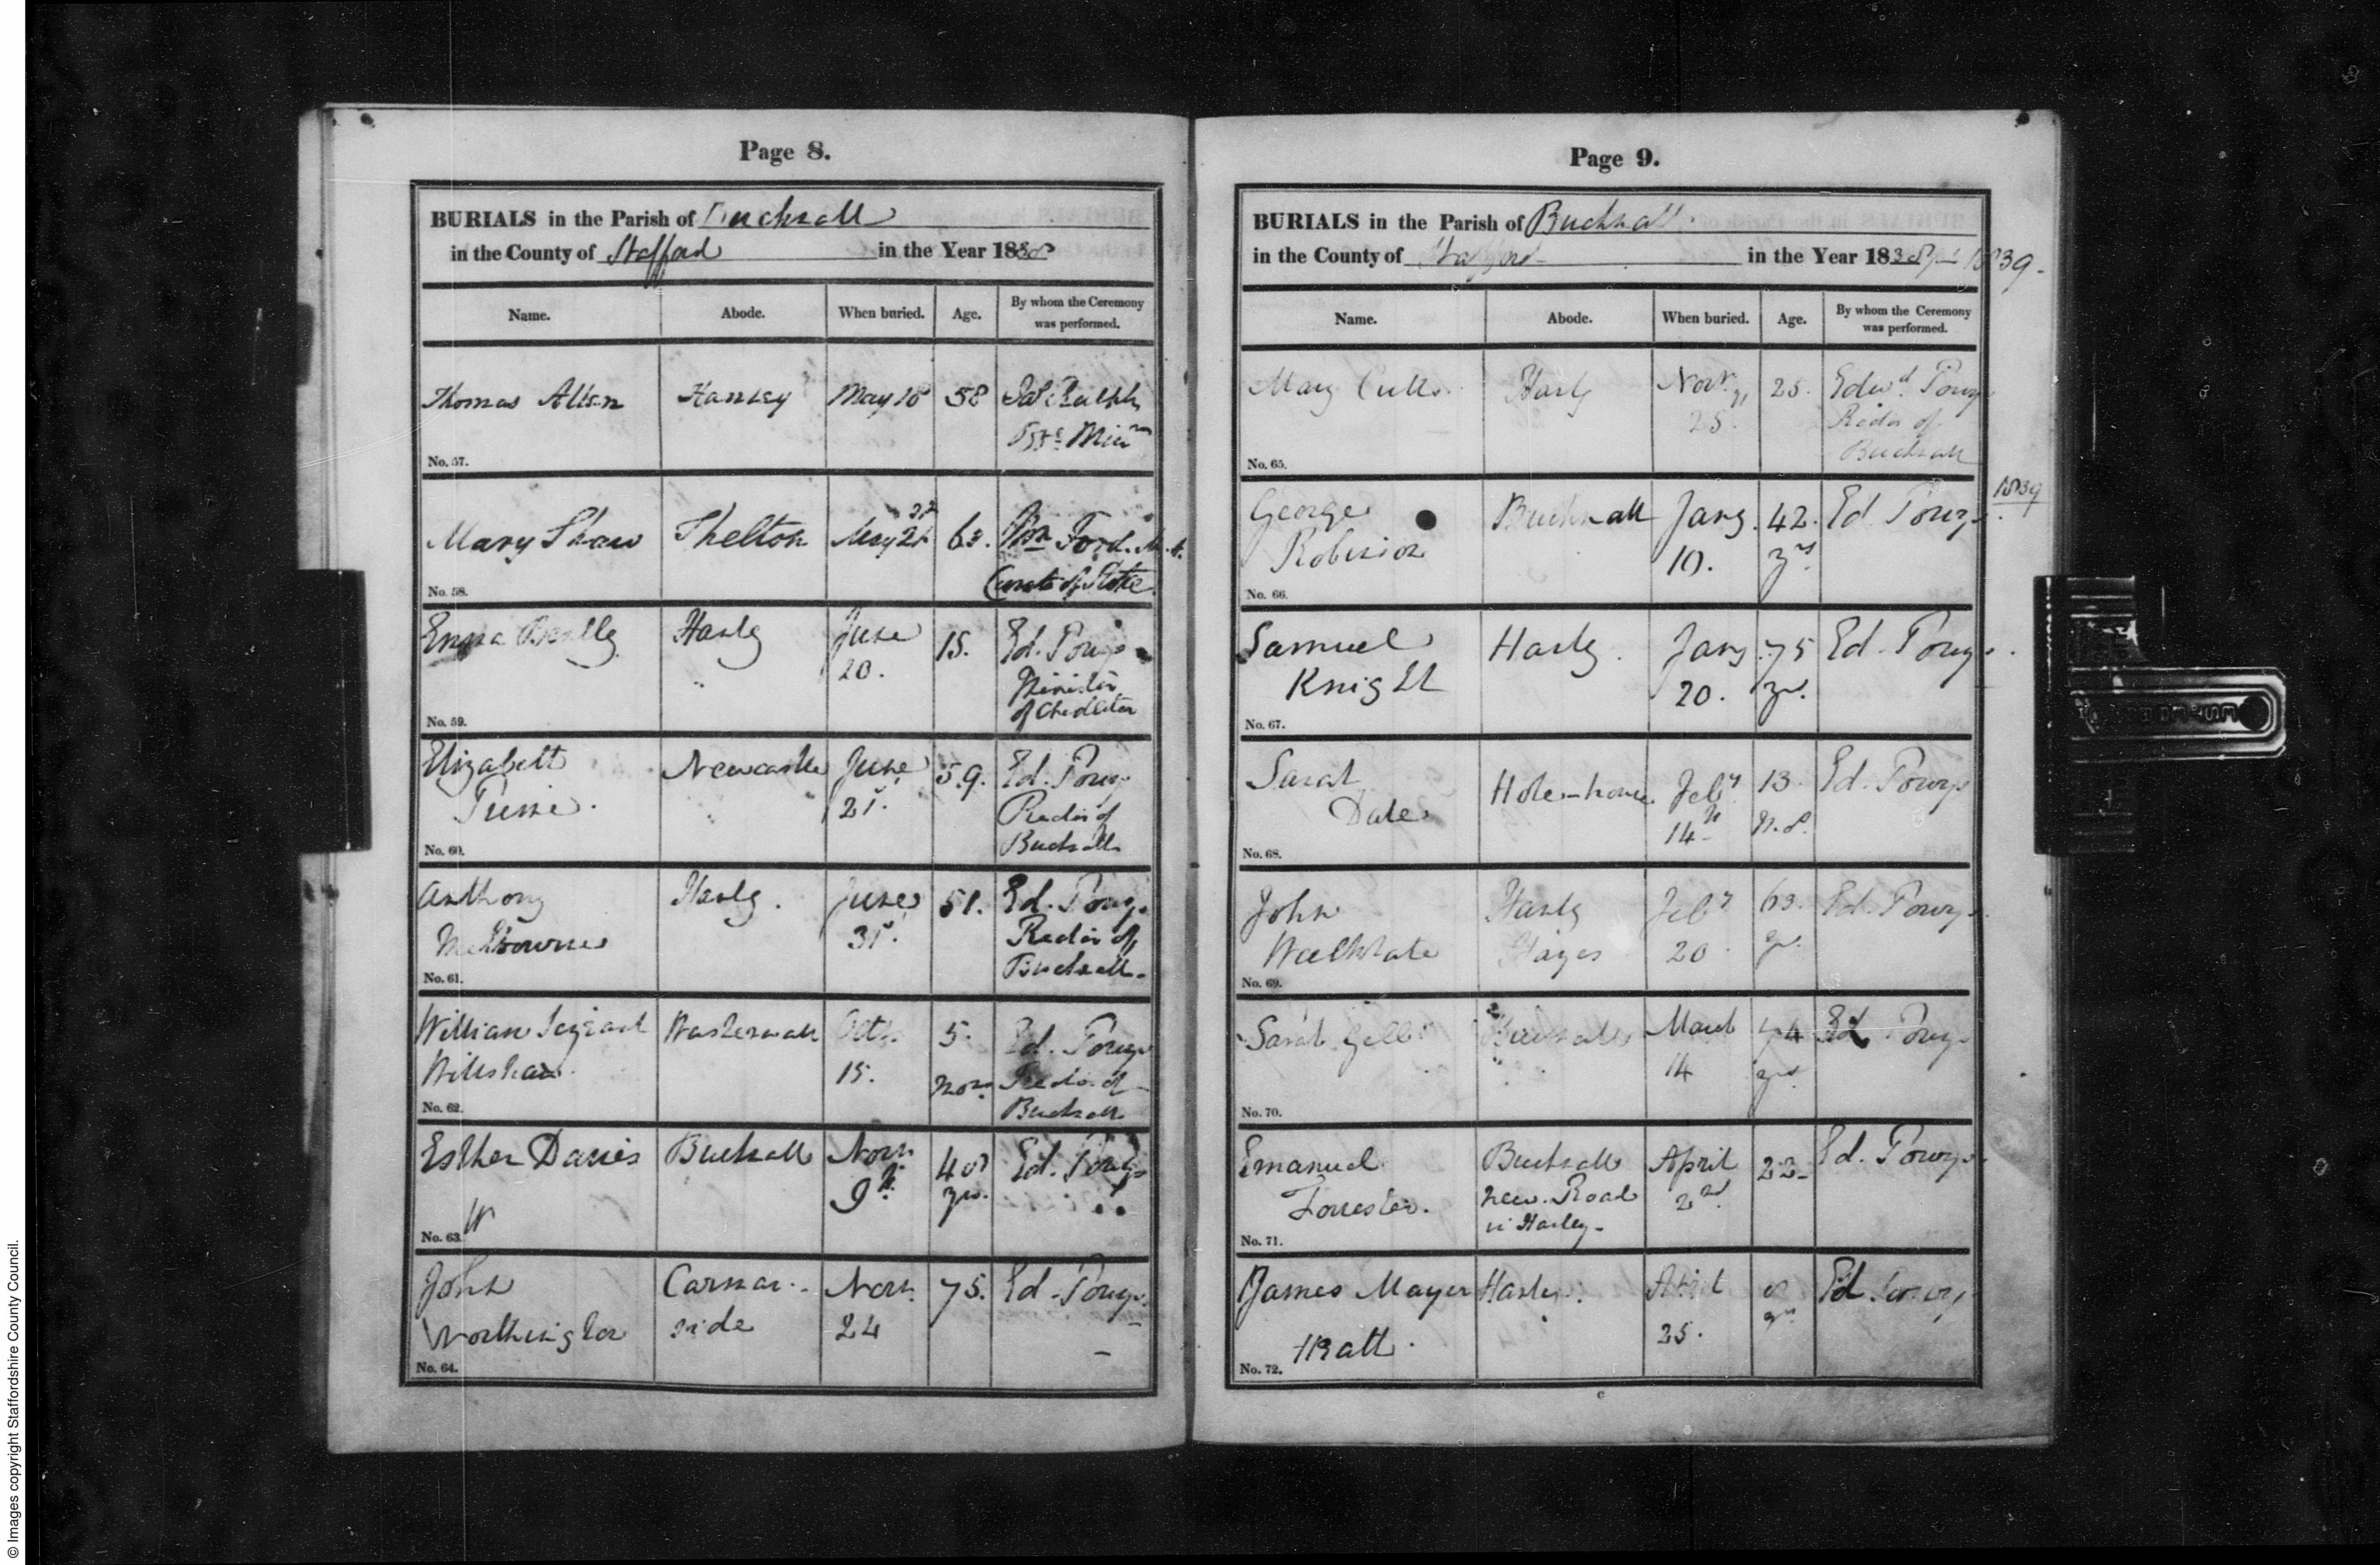 Page 8.
BURIALS in the Parish of Bucknall
in the County of Stafford in the Year 1838
Name. Abode. When buried. Age. By whom the Ceremony was performed.
Thomas Allen Hanley May 18 58
No. 57.
Mary Shaw Shelton May 63. Wm Ford. M.A.
Curate of Stoke
No. 58.
Emma Hanley June 15. Ed. Powys
20. Minister
of Cheddleton
No. 59.
Elizabeth Newcastle June 59. Ed. Powys
21. Rector of
Bucknall
No. 60.
Anthony Hanley. June 51. Ed. Powys
Melbourne Rector of
Bucknall.
No. 61.
William Wasterwall Octr. 5. Ed. Powys
Wilshaw. 15. mos. Rector of
Bucknall
No. 62.
Esther Davies Bucknall Novr. 48 Ed. Powys
9th yrs.
No. 63.
John Novr. 75. Ed. Powys.
Worthington side 24
No. 64.
Page 9.
BURIALS in the Parish of Bucknall
in the County of Stafford in the Year 1838 1839.
Name. Abode. When buried. Age. By whom the Ceremony was performed.
Mary Hanly Novr. 25. Edwd. Powys
25. Rector of
Bucknall
No. 65.
1839
George Bucknall Jany. 42. Ed. Powys.
Robinson 10. yrs.
No. 66.
Samuel Hanly. Jany. 75 Ed. Powys.
Knight 20. yrs.
No. 67.
Sarah Hole-house Feby. 13. Ed. Powys
Dale 14th
No. 68.
John Hanly Feby 63. Ed. Powys.
Walklate Hayes 20. yrs.
No. 69.
Sarah Gell Bucknall March Ed. Powys
14 yrs.
No. 70.
Emanuel Bucknall April 22. Ed. Powys.
Forrester. new. Road 2nd
in Hanley.
No. 71.
James Mayer Hanley. April Ed. Powys
Pratt. 25.
No. 72.
C
© Images copyright Staffordshire County Council.